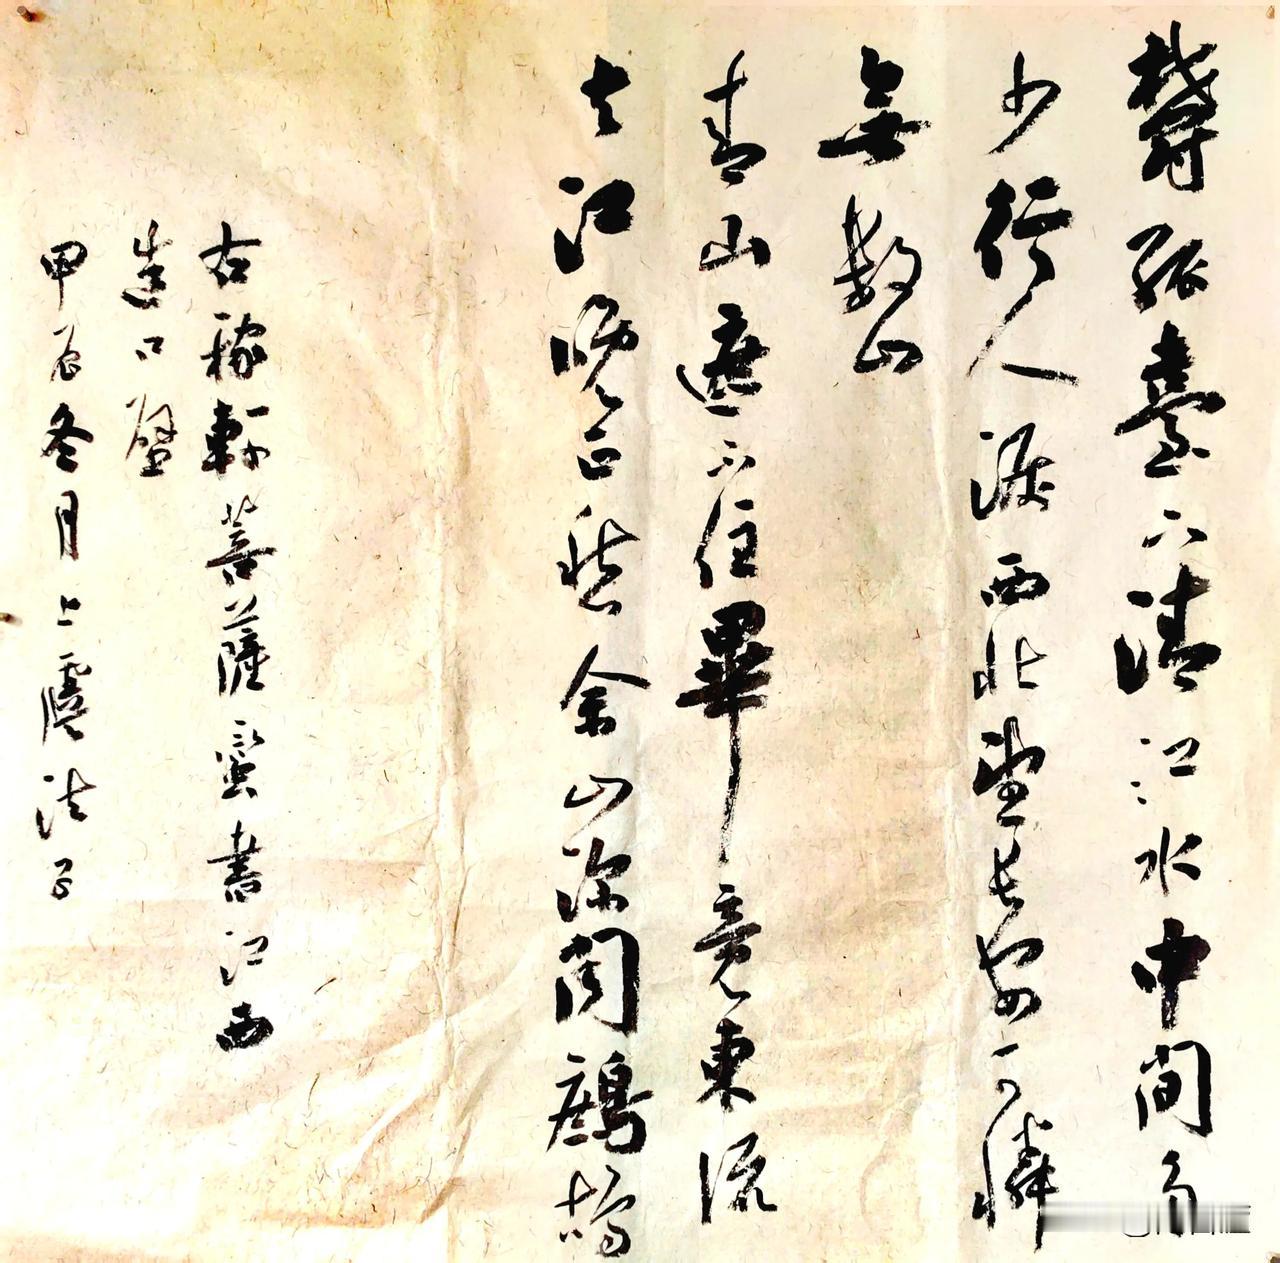 鬱孤臺下清江水中間多
少行人淚西北望長安可憐
無數山
青山遮不住畢竟東流
去江晚正愁余山深聞鷓鴣
右稼軒菩薩蠻書江西
造口壁
甲辰冬月上虞